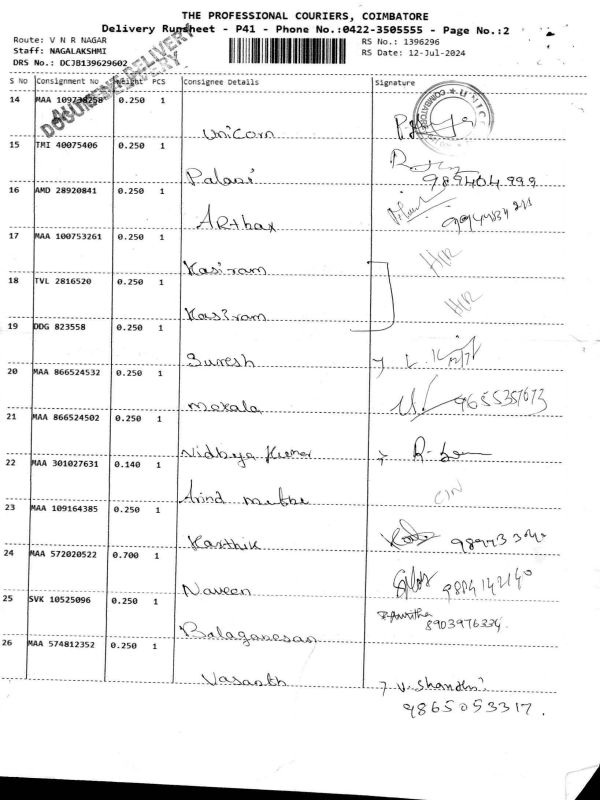 THE PROFESSIONAL COURIERS, COIMBATORE
Delivery Runsheet - P41 - Phone No.:0422-3505555 - Page No.:2
Route: V N R NAGAR
RS No.: 1396296
Staff: NAGALAKSHMI
RS Date: 12-Jul-2024
DRS No.: DCJB139629602
DOCUMENT DELIVERY
S No Consignment No Weight PCS Consignee Details Signature
14 MAA 109738258 0.250 1
Unicorn
15 TMI 40075406 0.250 1
Palani
989404999
16 AMD 28920841 0.250 1
17 MAA 100753261 0.250 1
Kasiram
18 TVL 2816520 0.250 1
Kasiram
19 DDG 823558 0.250 1
Suresh
20 MAA 866524532 0.250 1
Mekala
9655357673
21 MAA 866524502 0.250 1
Nidhya Kumar
22 MAA 301027631 0.140 1
23 MAA 109164385 0.250 1
Karthik
24 MAA 572020522 0.700 1
Naveen
9884142140
25 SVK 10525096 0.250 1
8903976334
Balaganesan
26 MAA 574812352 0.250 1
Vasanth V. Shandhi
9865053317.